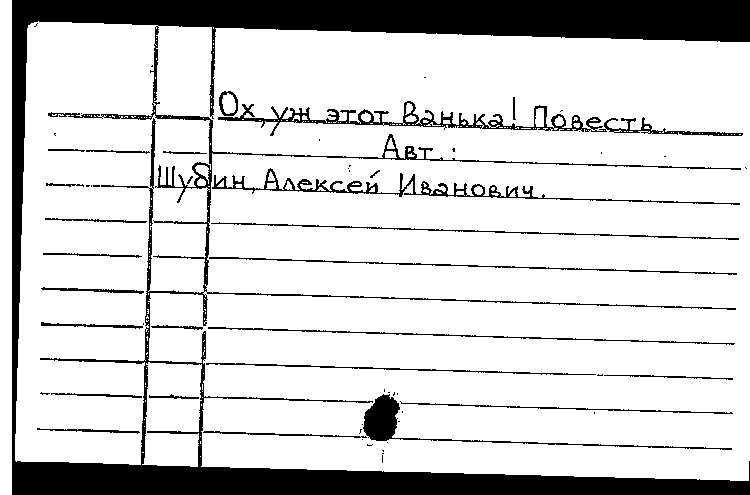 Ох, уж этот Ванька! Повесть.
Авт.:
Шубин, Алексей Иванович.